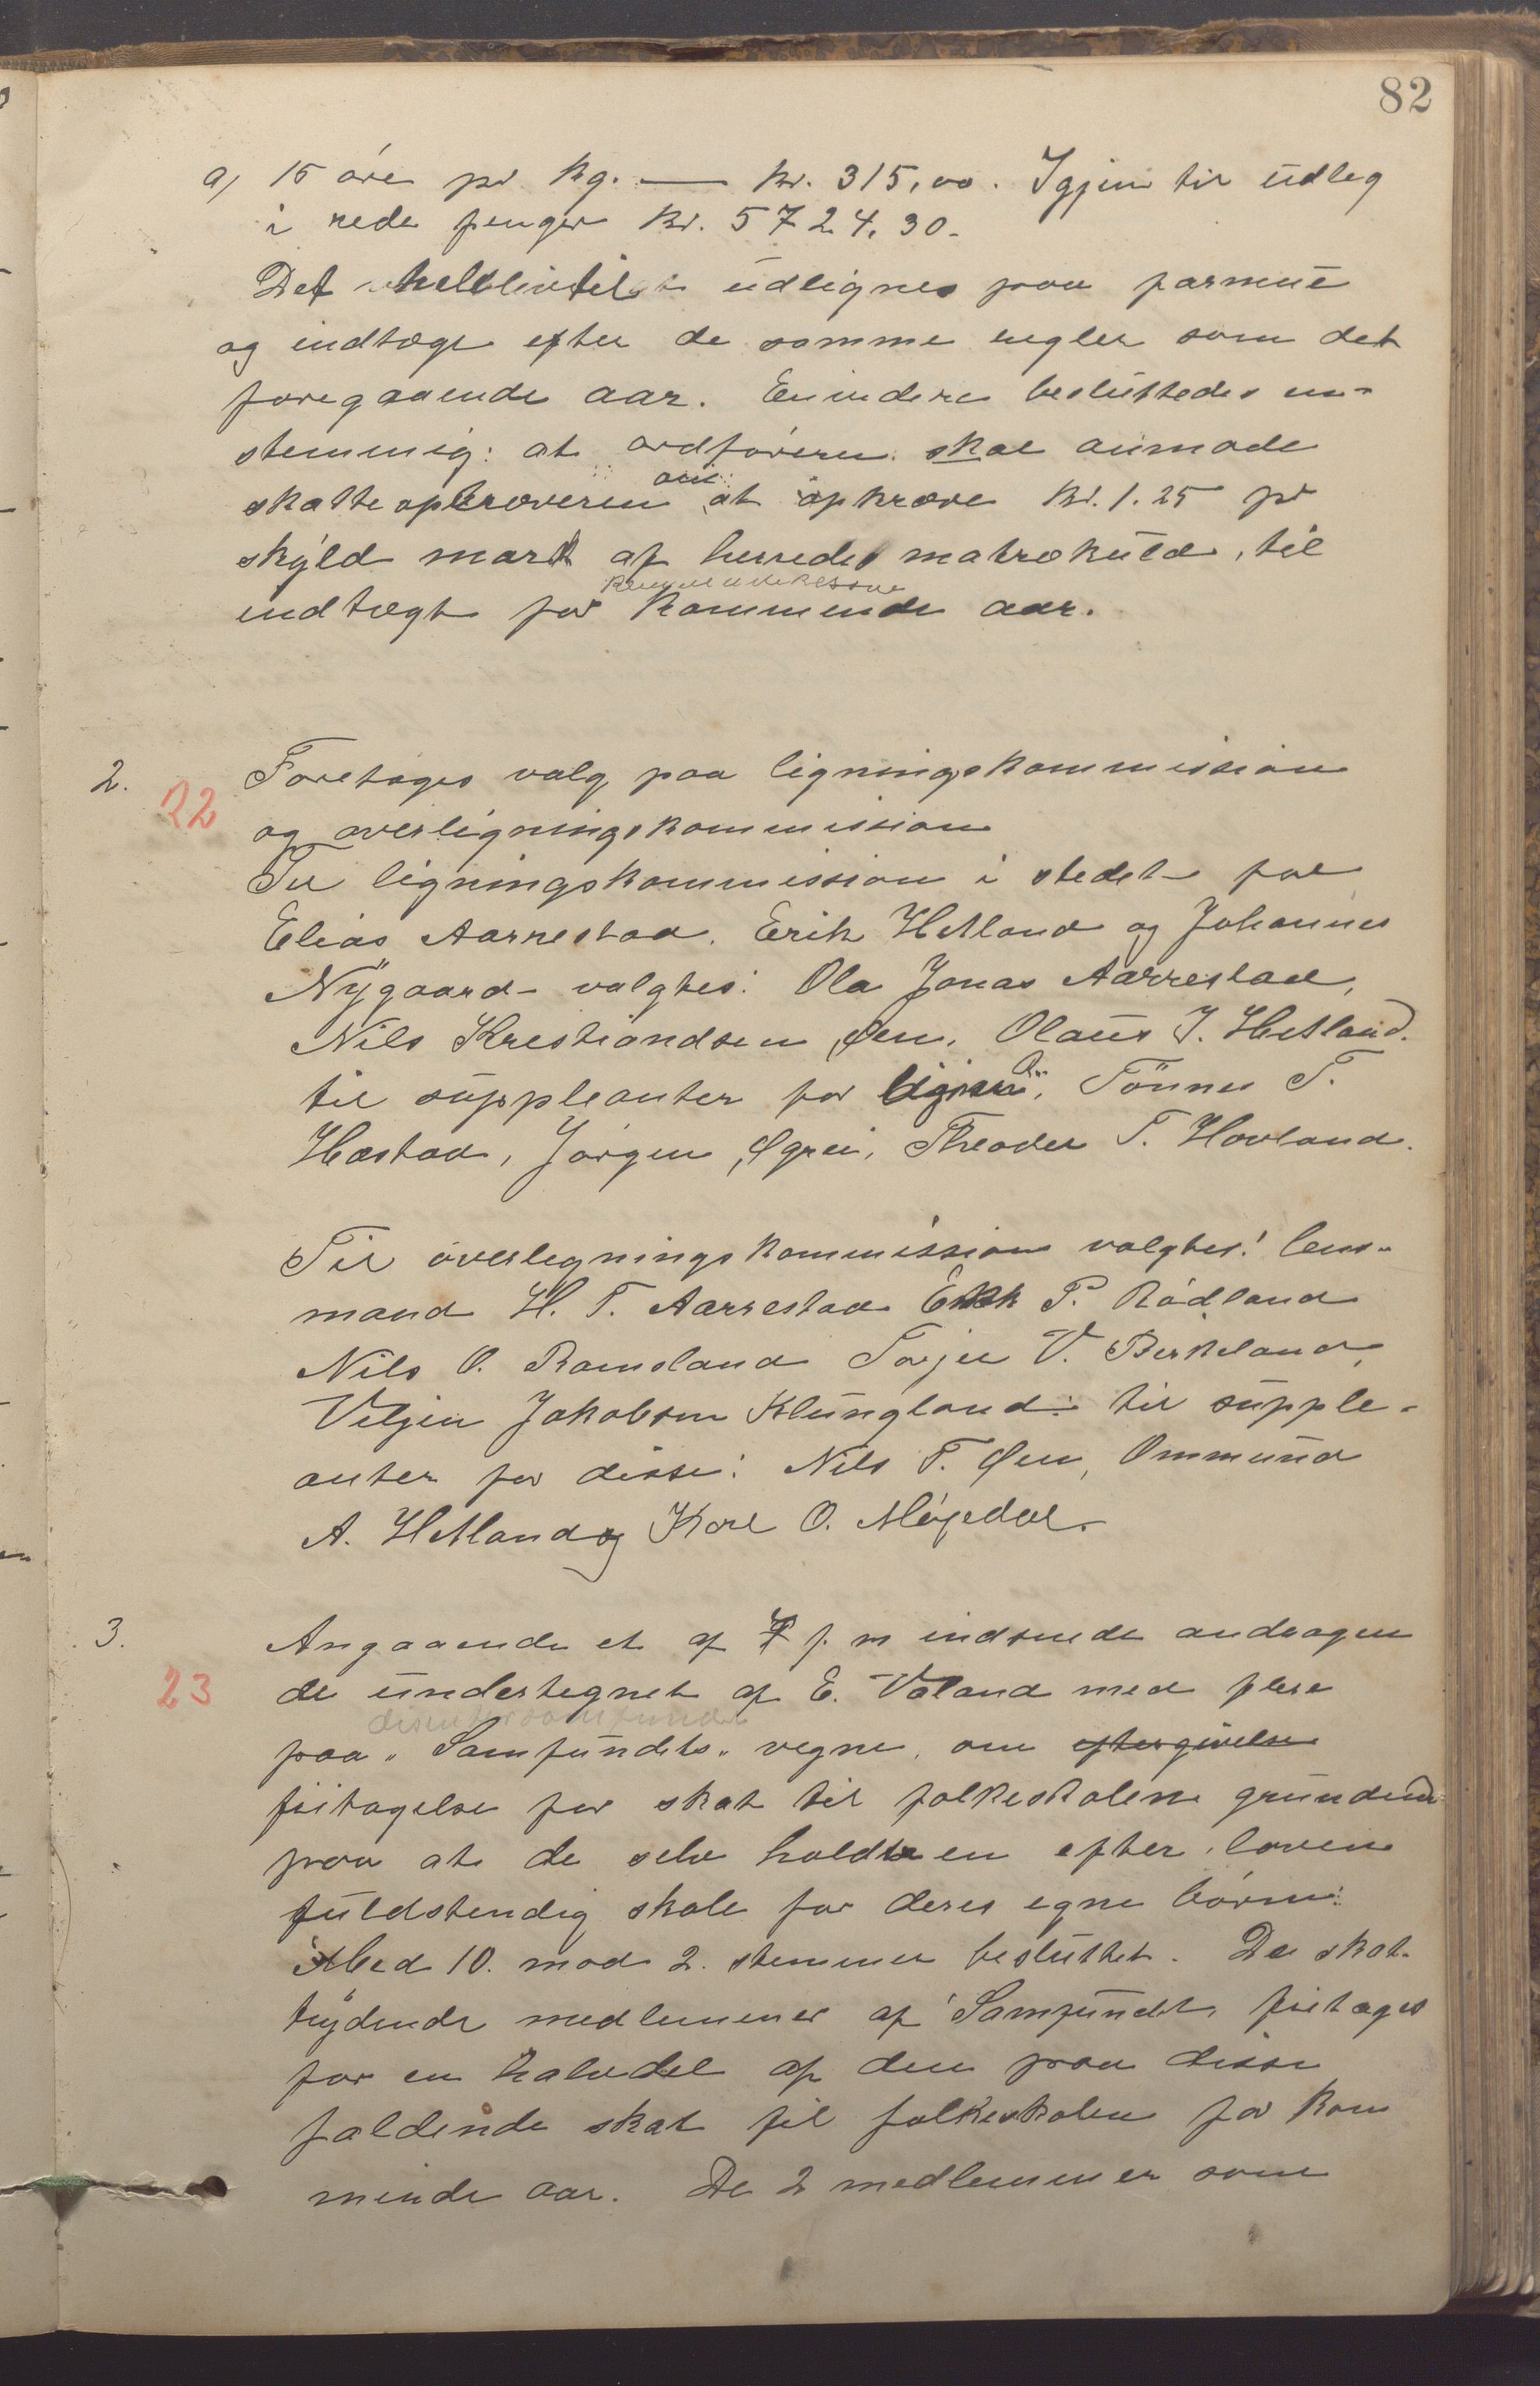 82
a) 15 øre pr kg. — kr. 315,00. Igjen til udleg
i rede penger kr. 5724,30.
Det udlignes paa formue
og indtægt efter de samme regler som det
foregaaende aar. Envidere besluttedes en-
stemmig: at ordføreren skal anmode
om
skatteopkræveren at opkræve kr. 1.25 pr
skyld mark af herredets matrekuld, til
indtægt for kommende aar.
2.
22
Foretoges valg paa ligningskommission
og overligningskommission
Til ligningskommission i stedet for
Elias Aarrestad, Erik Hetland og Johannes
Nygaard - valgtes: Ola Jonas Aarrestad,
Nils Krestiandsen Øen, Olaus J. Hetland.
til suppleanter for disse, Tönnes T.
Hæstad, Jørgen Øgrei, Theoder T. Hovland.
Til overlegningskommission valgtes: lens-
mand H. T. Aarrestad Erik P. Rødland
Nils O. Ramsland Torjer V. Birkeland,
Veljen Jakobsen Klungland: til supple-
anter for disse: Nils T. Øen, Ommund
A. Hetland og Karl O. Møgedal.
3.
23
Angaaende et af f. m indsende andragen
de undertegnet af E. Valand med flere
disentersamfundet
paa "Samfundets" vegne, om eftergivelse
fritagelse for skat til folkeskolen grundend
paa at de selv holdte en efter loven
fuldstendig skole for deres egne børn:
Med 10. mod 2. stemmer besluttet. De skat-
tydende medlemmer af Samfundet fritages
for en halvdel af den paa disse
faldende skat til folkeskolen for kom
mende aar. De 2 medlemmer som